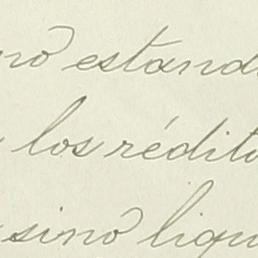 no estand
los rédito
sino liqu